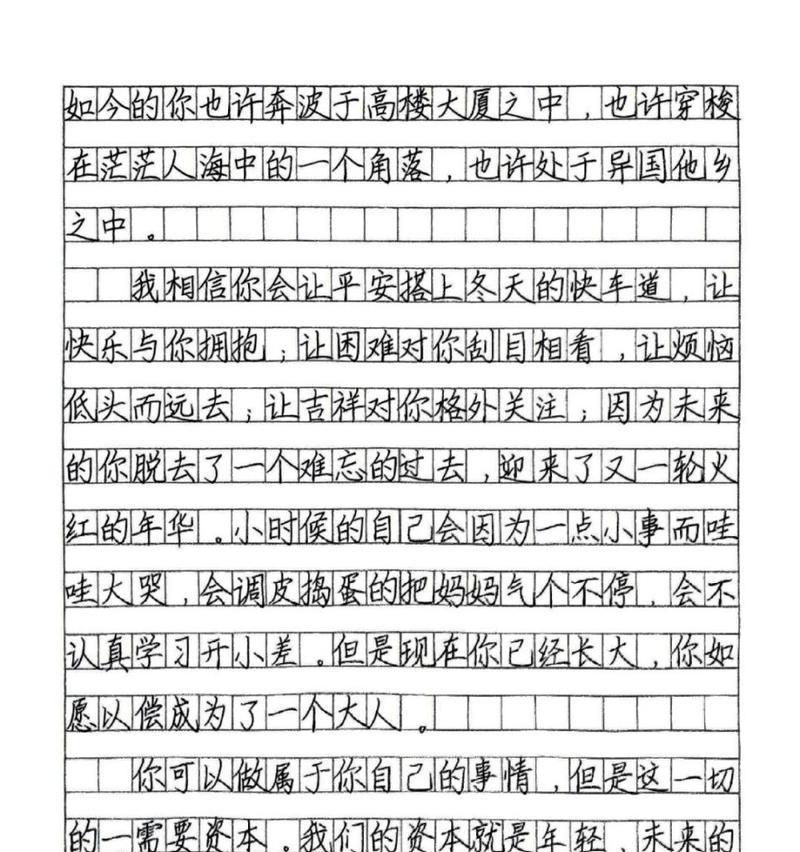 如今的你也许奔波于高楼大厦之中，也许穿梭
在茫茫人海中的一个角落，也许处于异国他乡
之中。
我相信你会让平安搭上冬天的快车道，让
快乐与你拥抱；让困难对你刮目相看，让烦恼
低头而远去；让吉祥对你格外关注；因为未来
的你脱去了一个难忘的过去，迎来了又一轮火
红的年华。小时候的自己会因为一点小事而哇
哇大哭，会调皮捣蛋的把妈妈气个不停，会不
认真学习开小差。但是现在你已经长大，你如
愿以偿成为了一个大人。
你可以做属于你自己的事情，但是这一切
的一需要资本。我们的资本就是年轻，未来的